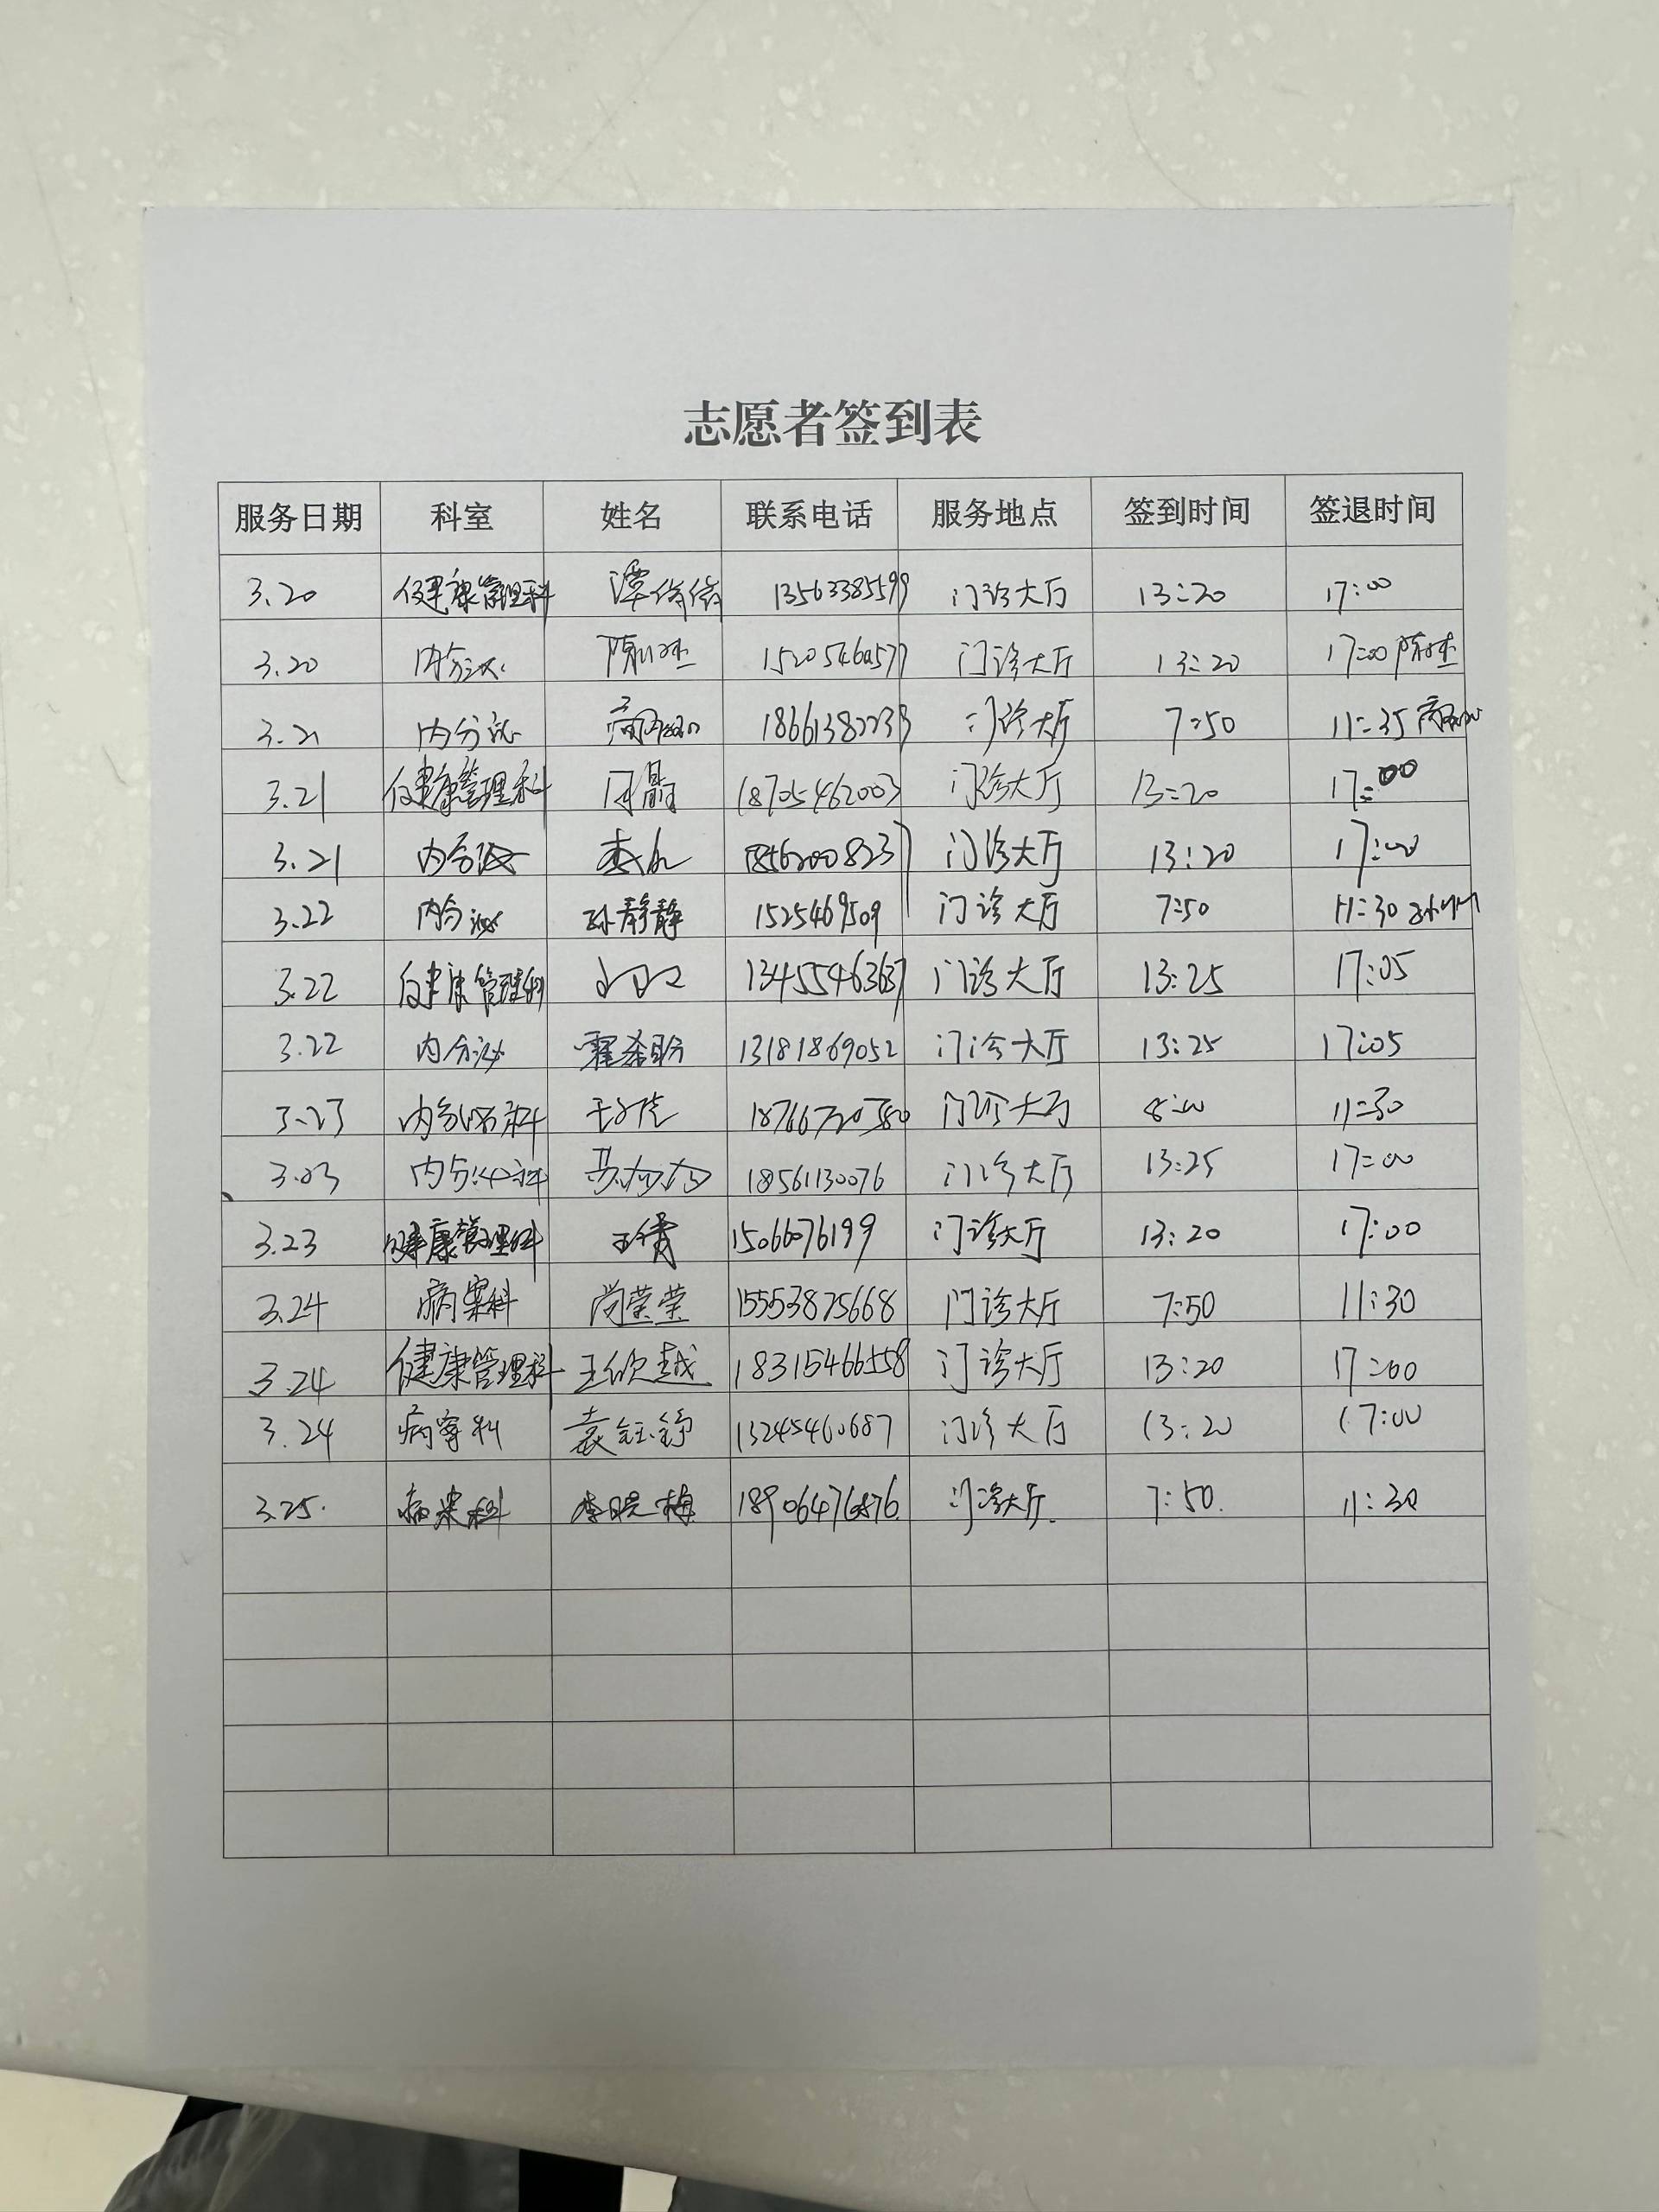 志愿者签到表
服务日期 科室 姓名 联系电话 服务地点 签到时间 签退时间
3.20 健康管理科 谭倩倩 13563385599 门诊大厅 13:20 17:00
3.20 内分泌 门诊大厅 13:20 17:00
3.21 内分泌 门诊大厅 7:50 11:35
3.21 健康管理科 18705462003 门诊大厅 13:20 17:00
3.21 内分泌 门诊大厅 13:20 17:00
3.22 内分泌 孙静静 1525469509 门诊大厅 7:50 11:30
3.22 健康管理科 13455463637 门诊大厅 13:25 17:05
3.22 内分泌 13181869052 门诊大厅 13:25 17:05
3.23 内分泌科 门诊大厅 8:00 11:30
3.23 内分泌科 18561130076 门诊大厅 13:25 17:00
3.23 健康管理科 王倩 15066076199 门诊大厅 13:20 17:00
3.24 病案科 尚荣荣 15553875668 门诊大厅 7:50 11:30
3.24 健康管理科 王欣越 18315466558 门诊大厅 13:20 17:00
3.24 病案科 袁钰铮 13245460687 门诊大厅 13:20 17:00
3.25. 病案科 李晓梅 18906476876 门诊大厅. 7:50. 11:30